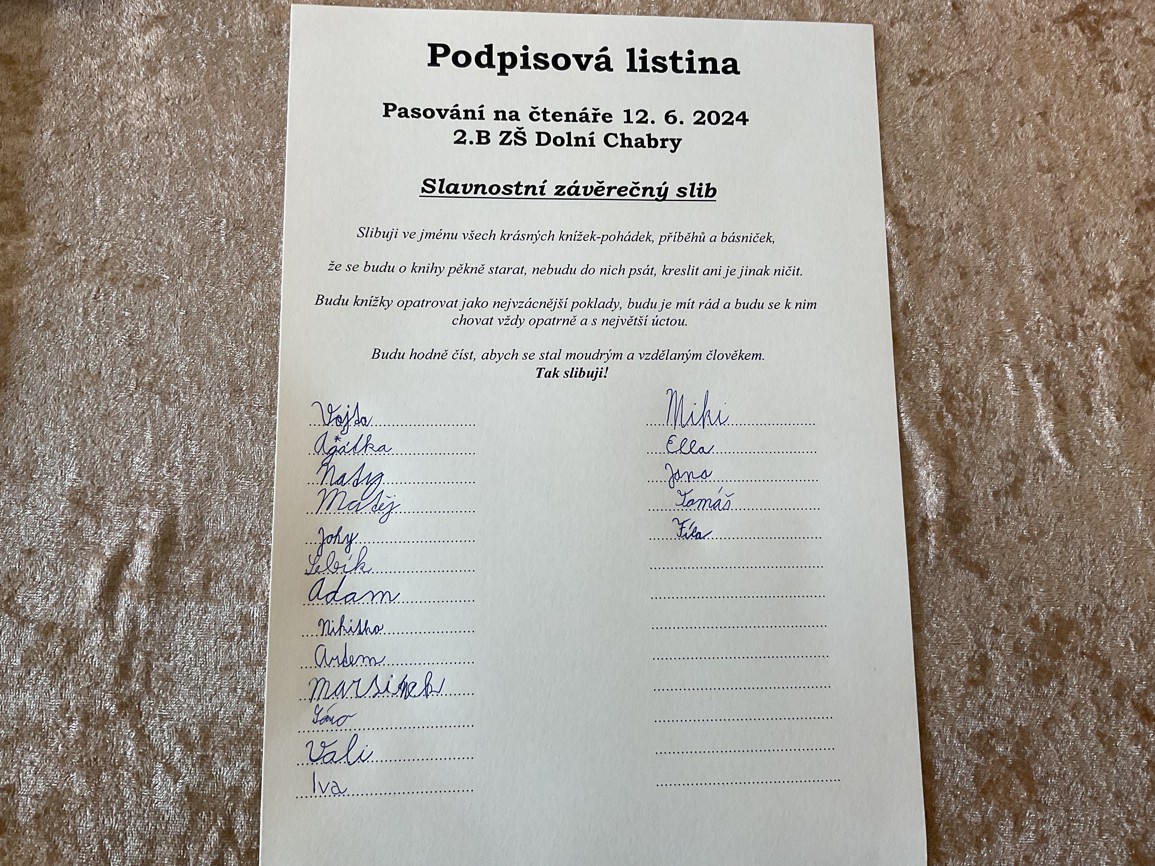 Podpisová listina
Pasování na čtenáře 12. 6. 2024
2.B ZŠ Dolní Chabry
Slavnostní závěrečný slib
Slibuji ve jménu všech krásných knížek-pohádek, příběhů a básniček,
že se budu o knihy pěkně starat, nebudu do nich psát, kreslit ani je jinak ničit.
Budu knížky opatrovat jako nejvzácnější poklady, budu je mít rád a budu se k nim
chovat vždy opatrně a s největší úctou.
Budu hodně číst, abych se stal moudrým a vzdělaným člověkem.
Tak slibuji!
Vojta
Agátka
Naty
Matěj
Johy
Sebík
Adam
Artem
Vali
Iva
Miki
Ella
Jana
Tomáš
Fíla